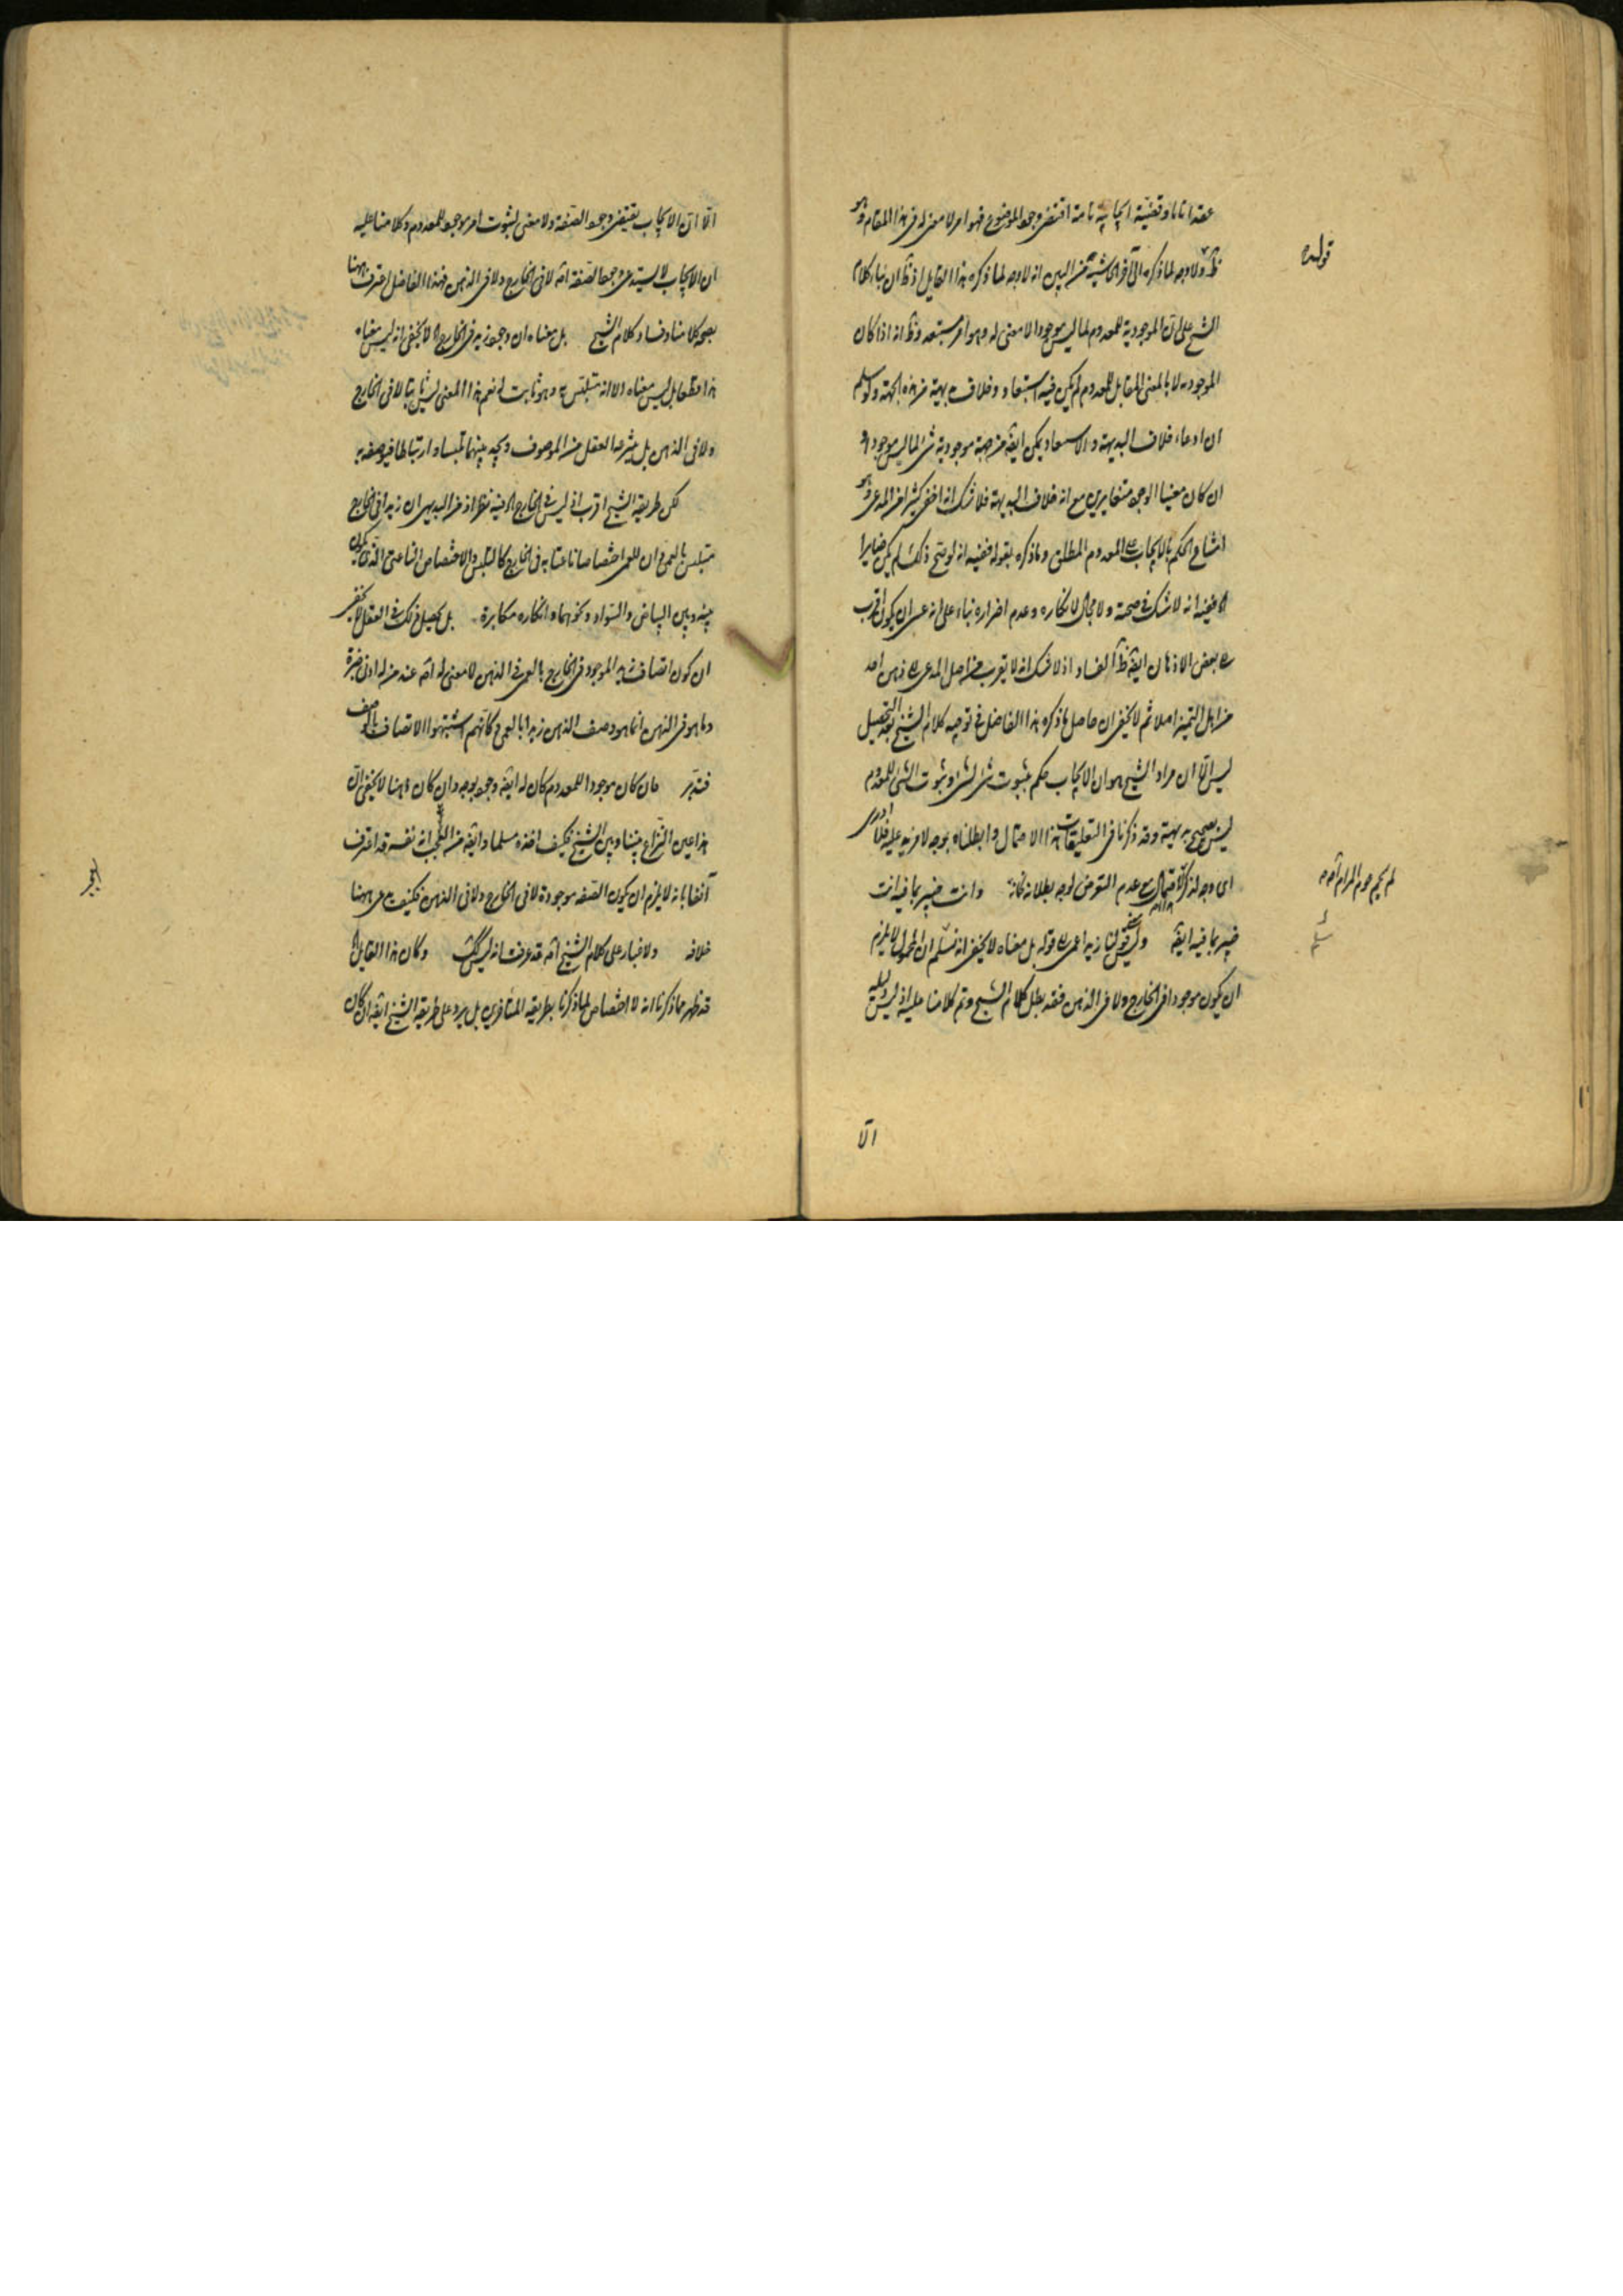 عقدا تاما وقضية ايجابية تامة اقتضى وجود الموضوع فهو امر لا معنى له فى هذا المقام وهو
ظ ولا وجه لما ذكره الى آخر الحاشية من البين انه لا وجه لما ذكره هذا القايل اذ ظ ان بناء كلام
قوله
الشيخ على ان الموجودية للمعدوم لما ليس موجودا لا معنى له وهو امر مستبعد وظ انه اذا كان
الموجود لا بالمعنى المقابل للمعدوم لم يكن فيه استبعاد وخلاف بديهية من هذه الجهة ولو سلم
ان ادعاء خلاف البديهة والاستبعاد يمكن ايضا من جهة موجودية شئ لما ليس موجودا
ان كان معنيا الوجود متغايرين مع انه خلاف البديهة فلا شك انه اخفى كثيرا من المدعى وهو
امتناع الحكم بالايجاب على المعدوم المطلق وما ذكره بقوله ففيه انه لو صح ذلك لم يكن ضايرا
ففيه انه لا شك فى صحته ولا مجال لانكاره وعدم اضراره بناء على انه عسى ان يكون اقرب
الى بعض الاذهان ايضا ظ الفساد اذ لا شك انه لا يقرب من اصل المدعى الى ذهن احد
من اهل التميز اصلا ثم لا يخفى ان حاصل ما ذكره هذا الفاضل فى توجيه كلام الشيخ بعد التحصيل
ليس الا ان مراد الشيخ هو ان الايجاب حكم بثبوت شئ لشئ وثبوت الشئ للمعدوم
ليس بصحيح بديهة وقد ذكرنا فى التعليقات هذا الاحتمال وابطلناه بوجه لا مزيد عليه فلا ادرى
اى وجه لذكر الاحتمال مع عدم التعرض لوجه بطلانه وانت خبير بما فيه انت
لم يحم حوم المرام
خبير بما فيه ايضا قولنا زيد اعمى الى قوله بل معناه لا يخفى انه نسلم ان المحمول لا يلزم
ان يكون موجودا فى الخارج ولا فى الذهن فقد بطل كلام الشيخ وتم كلامنا عليه اذ ليس دليله
الا
الا ان الايجاب يقتضى وجود الصفة ولا معنى لثبوت امر موجود للمعدوم وكلامنا عليه
ان الايجاب لا يستدعى وجود الصفة لا فى الخارج ولا فى الذهن فهذا الفاضل اعترف ههنا
بصحة كلامنا وفساد كلام الشيخ بل معناه ان وجود زيد فى الخارج لا يخفى انه ليس معناه
هذا قطعا بل ليس معناه الا انه متلبس به وهو ثابت له نعم هذا المعنى ليس ثابتا لا فى الخارج
ولا فى الذهن بل ينتزعه العقل من الموصوف ويجد بينهما تلبسا وارتباطا فيوصفه به
لكن طريقة الشيخ اقرب اذ ليس فى الخارج فيه نظر اذ من البديهى ان زيدا فى الخارج
متلبس بالعمى وان للعمى اختصاصا ناعتا به فى الخارج كالتلبس والاختصاص الناعتى الذى يكون
بينه وبين البياض والسواد ونحوهما وانكاره مكابرة بل يحصل ذلك فى العقل لا يخفى
ان كون اتصاف زيد الموجود فى الخارج بالعمى فى الذهن لا معنى له عند من له ادنى خبرة
وما هو فى الذهن انما هو وصف الذهن زيدا بالعمى وكانهم اشتبهوا الاتصاف بالوصف
فتدبر فان كان موجودا للمعدوم كان له ايضا وجود بوجه وان كان واهنا لا يخفى ان
هذا عين النزاع بيننا وبين الشيخ فكيف اخذه مسلما وايضا من العجب انه نفسه قد اعترف
آنفا بانه لا يلزم ان يكون الصفة موجودة لا فى الخارج ولا فى الذهن فكيف يدعى ههنا
خلافه ولا غبار على كلام الشيخ قد عرفت انه ليس كذلك وكان هذا القايل
قد ظهر مما ذكرنا انه لا اختصاص لما ذكرنا بطريقة المتاخرين بل يرد على طريقة الشيخ ايضا وان كان